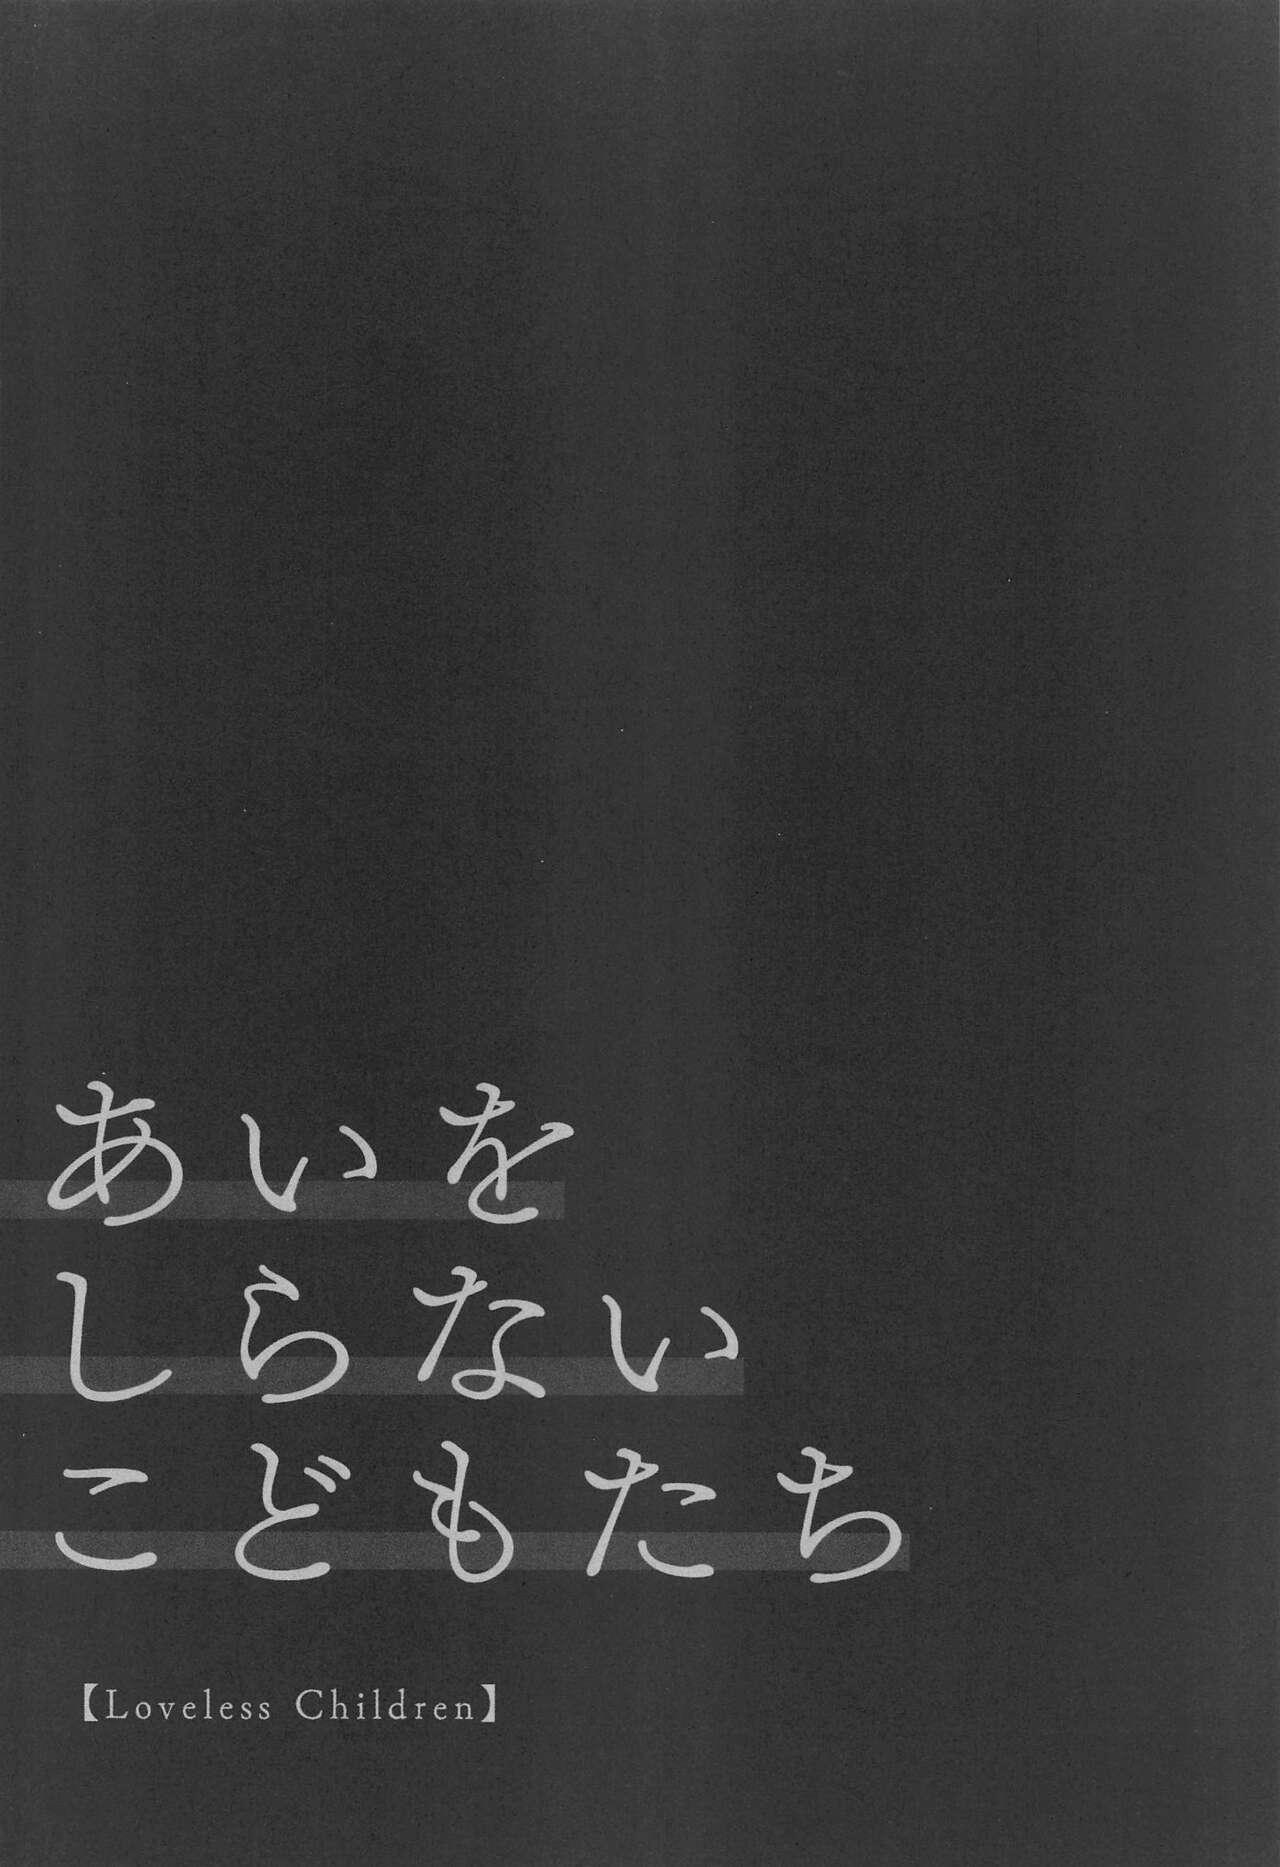 あいを
しらない
こどもたち
【Loveless Children】